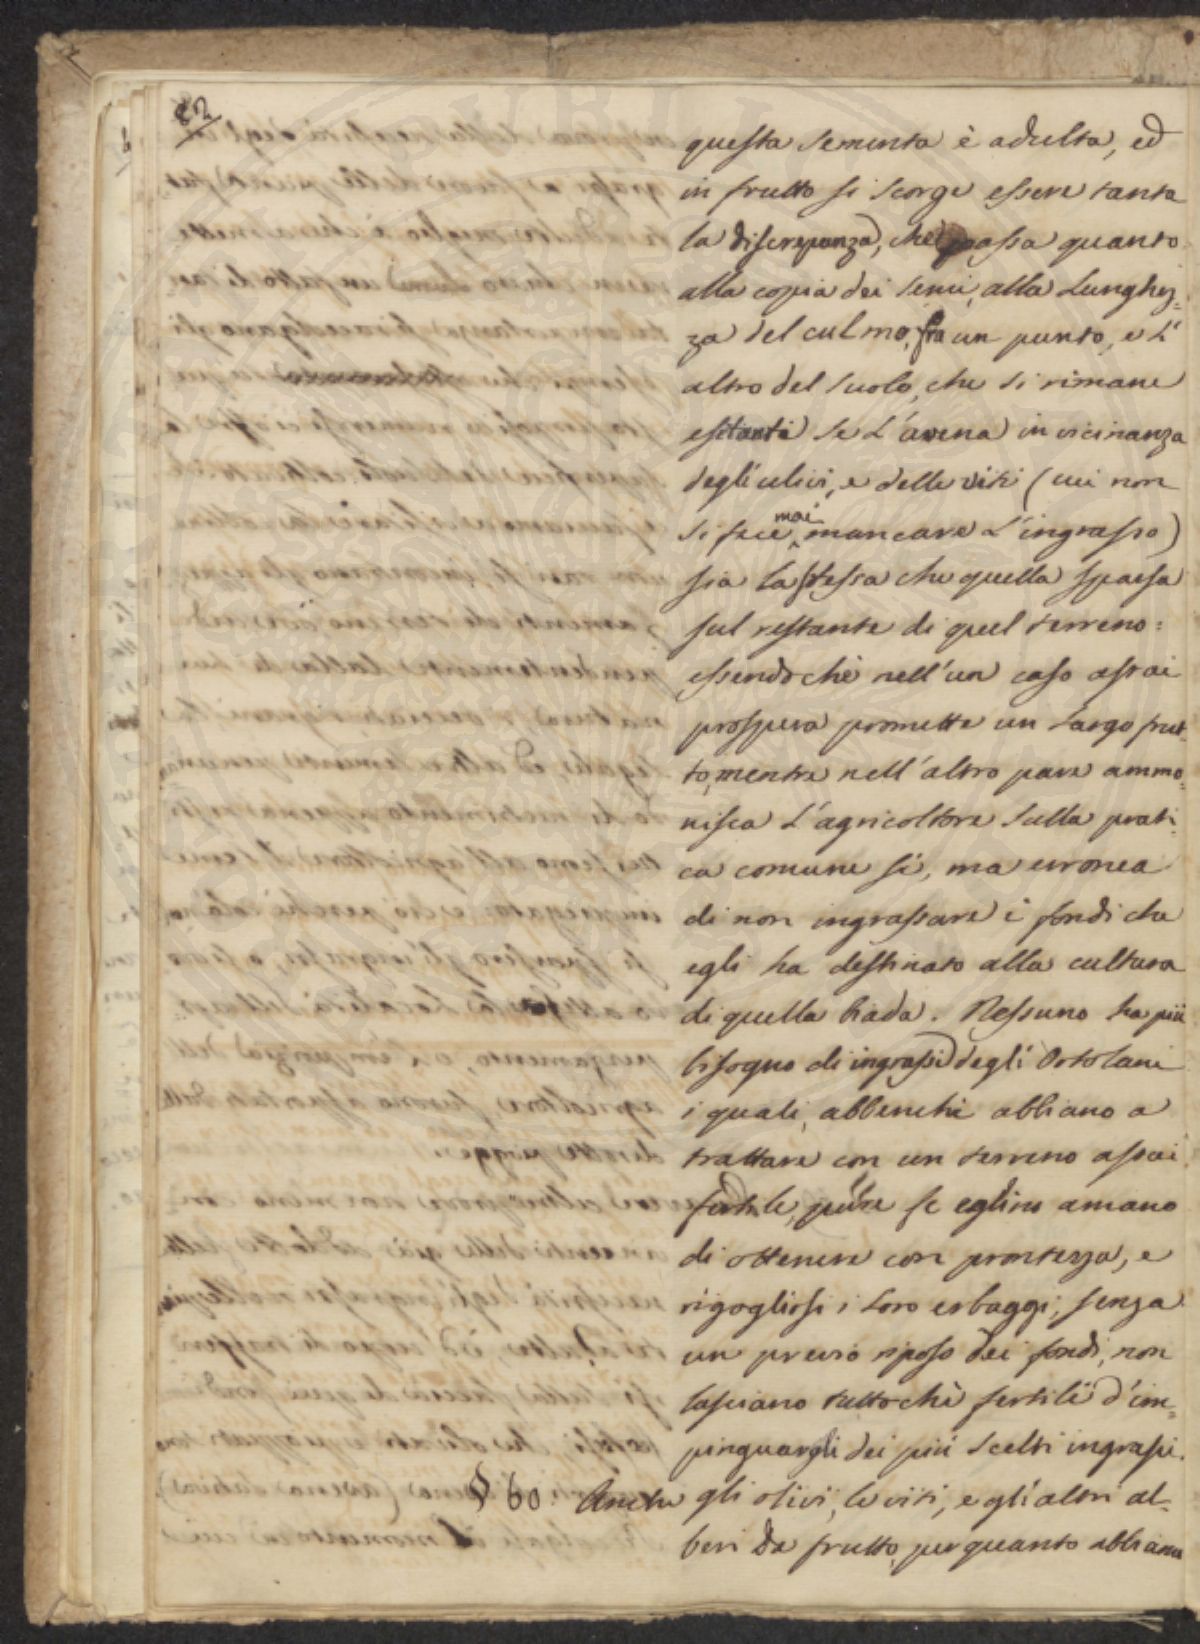 82
questa sementa è adulta, ed
in frutto si scorge essere tanta
la discrepanza, che passa quanto
alla copia dei semi, alla Lunghez-
za del culmo, fra un punto, e L'
altro del suolo, che si rimane
esitanti se L'avena in vicinanza
degli ulivi, e delle viti (cui non
si fece mai mancare L'ingrasso)
sia la stessa che quella sparsa
sul restante di quel terreno:
essendochè nell'un caso assai
prospera promette un Largo frut-
to, mentre nell'altro pare ammo-
nisca L'agricoltore sulla prati-
ca comune sì, ma erronea
di non ingrassare i fondi che
egli ha destinato alla cultura
di quella biada. Nessuno ha più
bisogno di ingrassi degli Ortolani
i quali, abbenchè abbiano a
trattare con un terreno assai
fertile, pure se eglino amano
di ottenere con prontezza, e
rigogliosi i Loro erbaggi, senza
un previo riposo dei fondi, non
lasciano tuttochè fertili d'im-
pinguargli dei più scelti ingrassi.
§ 60. Anche gli olivi, le viti, e gl'altri al-
beri da frutto, per quanto abbiano